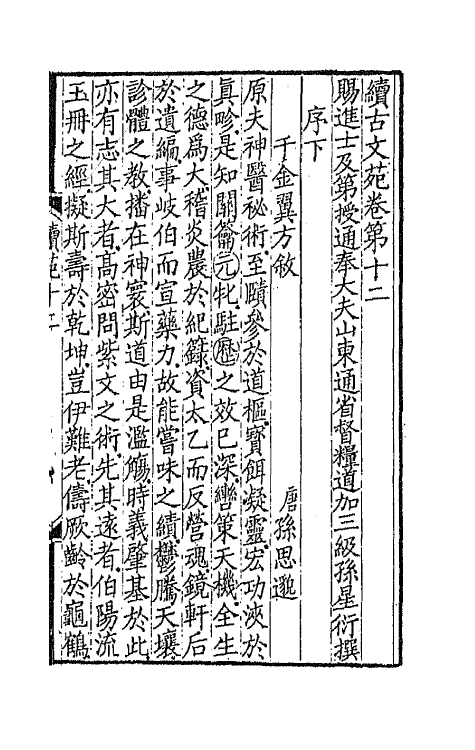 續古文苑卷第十二
賜進士及第授通奉大夫山東通省督糧道加三級孫星衍撰
序下
千金翼方敘　唐孫思邈
原夫神醫祕術至賾參於道樞寶餌凝靈宏功浹於
眞畛是知關籥元牝駐歷之效已深轡策天機全生
之德爲大稽炎農於紀籙資太乙而反營魂鏡軒后
於遺編事岐伯而宣藥力故能嘗味之績鬱騰天壤
診體之教播在神寰斯道由是濫觴時義肇基於此
亦有志其大者高密問紫文之術先其遠者伯陽流
玉冊之經擬斯壽於乾坤豈伊難老儔厥齡於龜鶴
續苑十二